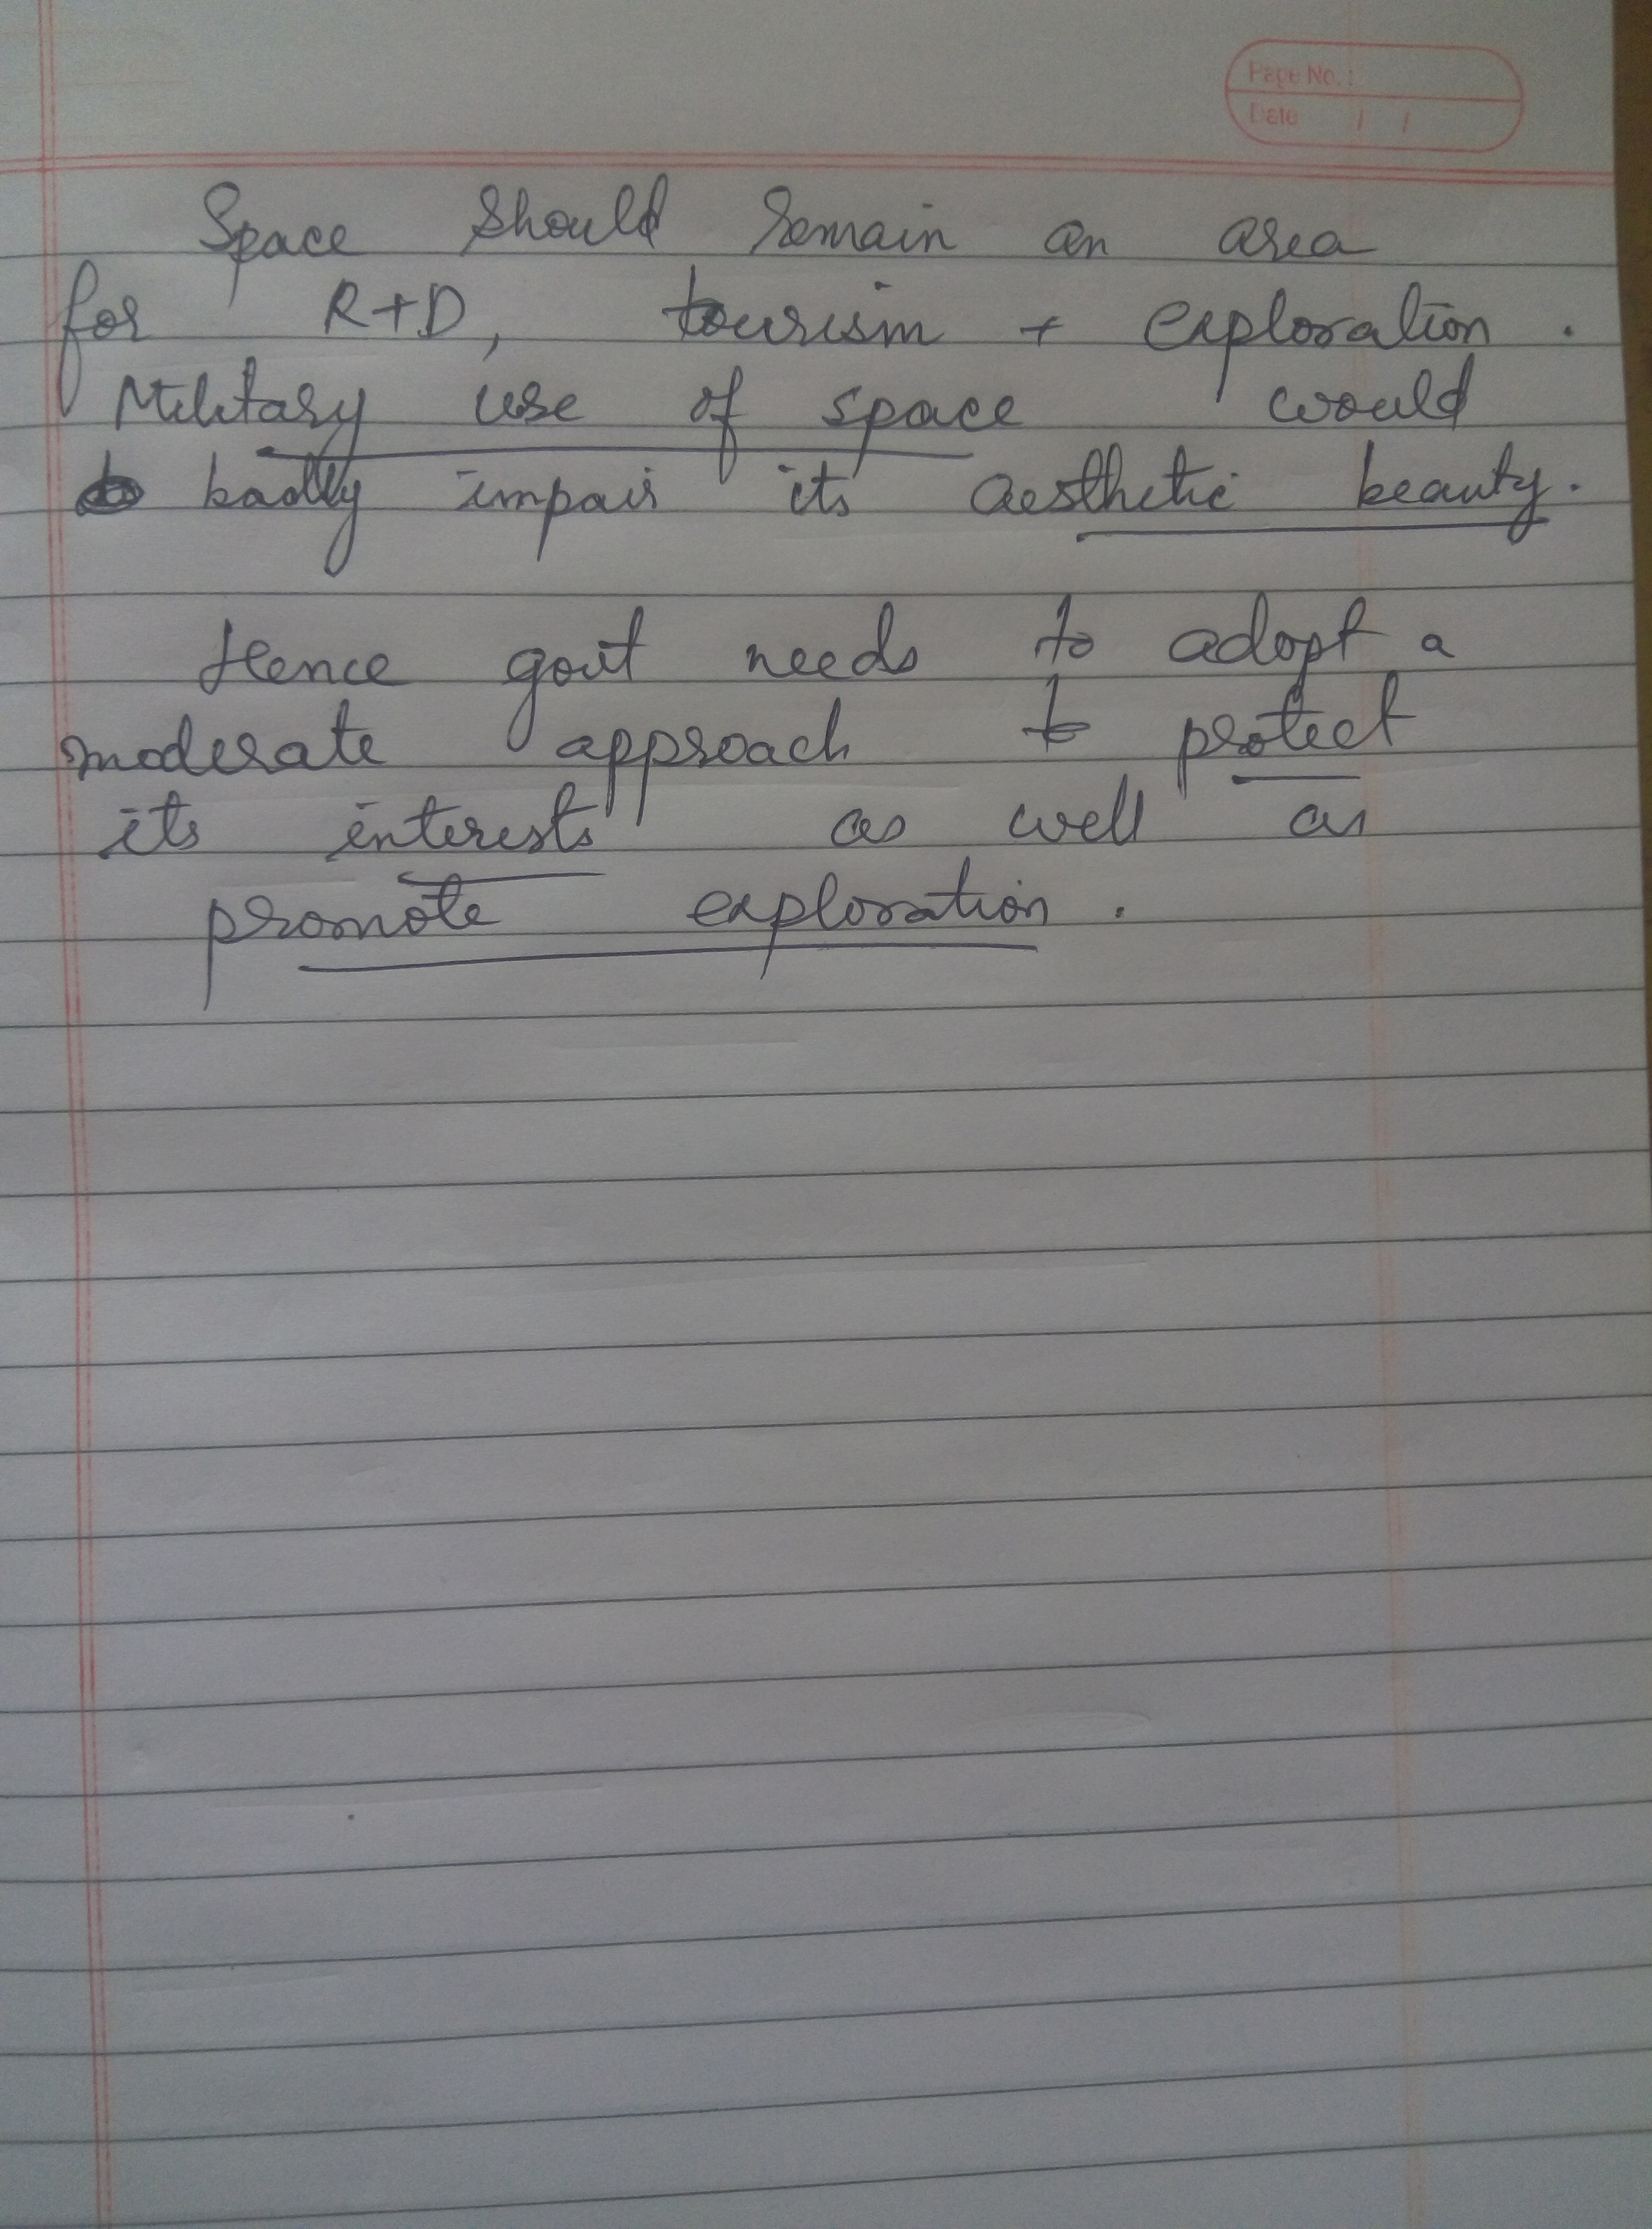 Page No. :
Date / /
Space should remain an area
for R+D, tourism + exploration.
Military use of space would
badly impair its aesthetic beauty.
Hence govt needs to adopt a
moderate approach to protect
its interests as well as
promote exploration.